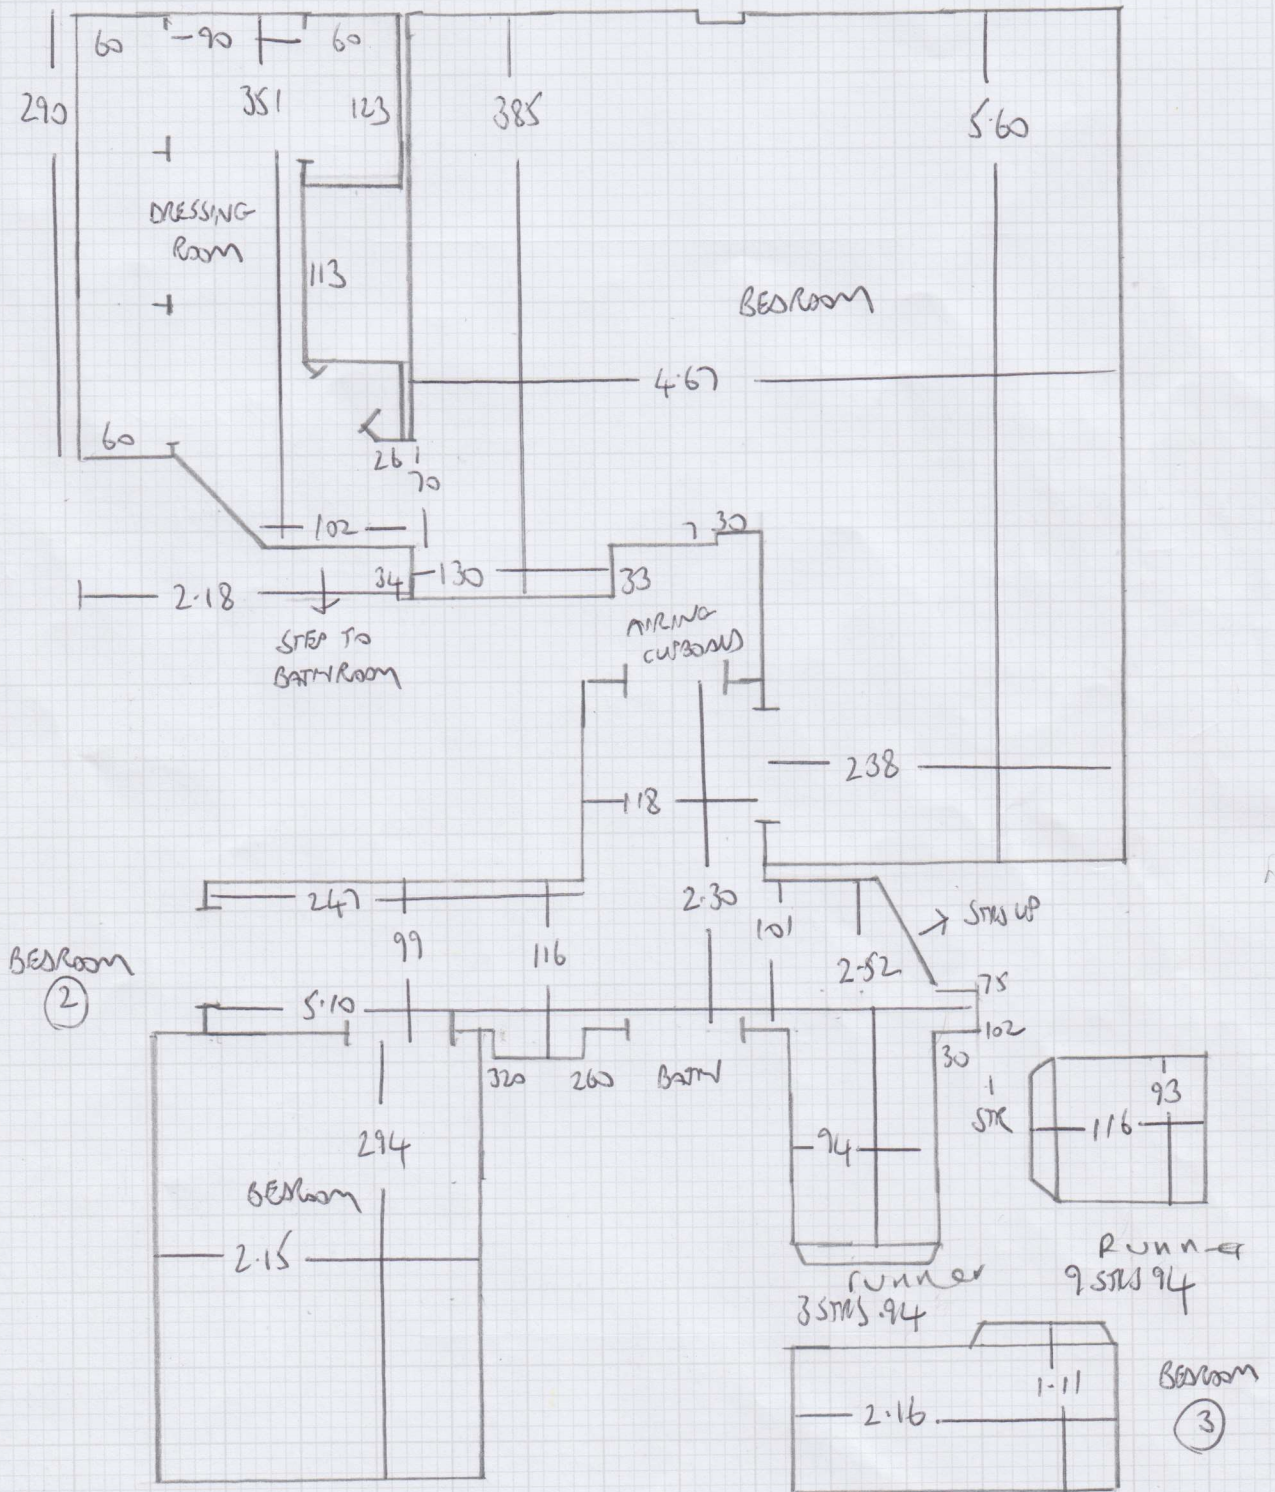 60 90 60
290 351 123 385 5.60
DRESSING
ROOM
113
BEDROOM
4.67
60
26
70
102
7 30
34 130 33
2.18
STEP TO
BATHROOM
AIRING
CUPBOARD
238
118
247 2.30
101
STRS UP
99 116
2.52
BEDROOM
2
75
5.10
102
30
320 260 BATH
1
STR
93
116
94
294
BEDROOM
2.15
Runner
9 STRS 94
runner
3 STRS .94
1.11
BEDROOM
3
2.16